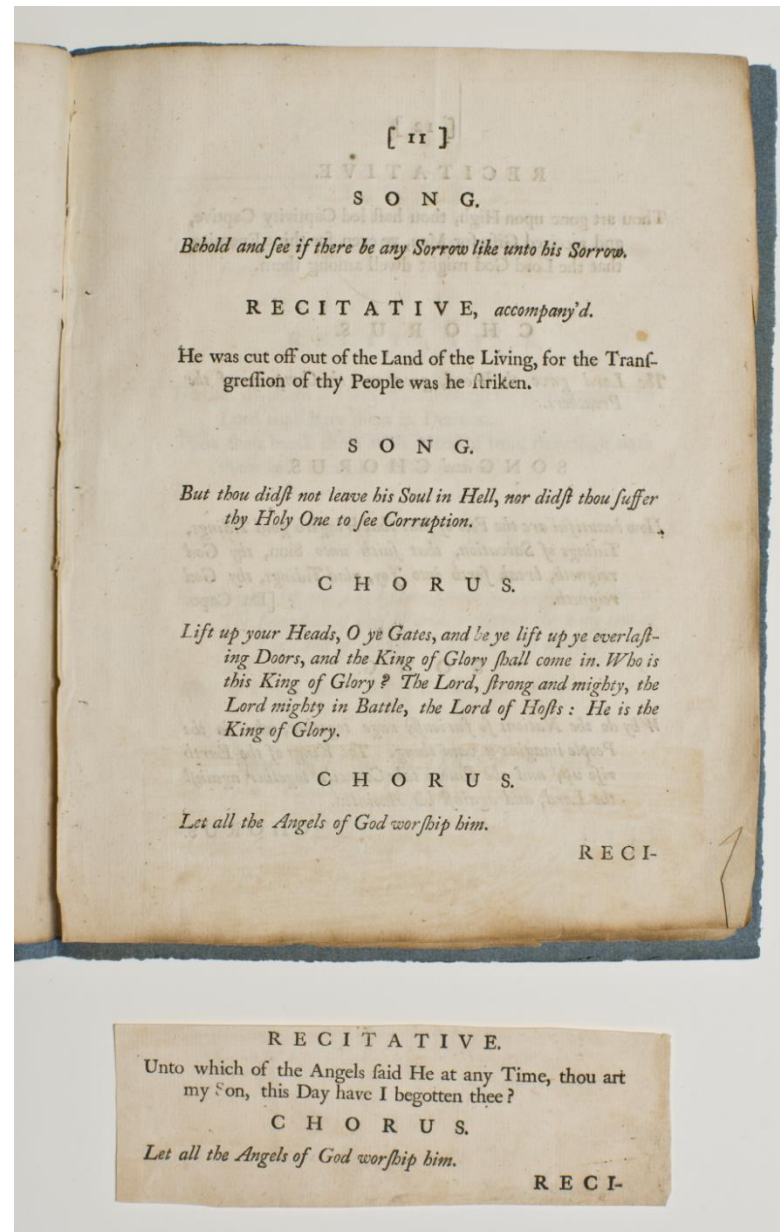 [ 11 ]
S O N G.
Behold and ſee if there be any Sorrow like unto his Sorrow.
R E C I T A T I V E, accompany'd.
He was cut off out of the Land of the Living, for the Tranſ-
greſſion of thy People was he ſtriken.
S O N G.
But thou didſt not leave his Soul in Hell, nor didſt thou ſuffer
thy Holy One to ſee Corruption.
C H O R U S.
Lift up your Heads, O ye Gates, and be ye lift up ye everlaſt-
ing Doors, and the King of Glory ſhall come in. Who is
this King of Glory ? The Lord, ſtrong and mighty, the
Lord mighty in Battle, the Lord of Hoſts : He is the
King of Glory.
C H O R U S.
Let all the Angels of God worſhip him.
R E C I-
R E C I T A T I V E.
Unto which of the Angels ſaid He at any Time, thou art
my Son, this Day have I begotten thee ?
C H O R U S.
Let all the Angels of God worſhip him.
R E C I-